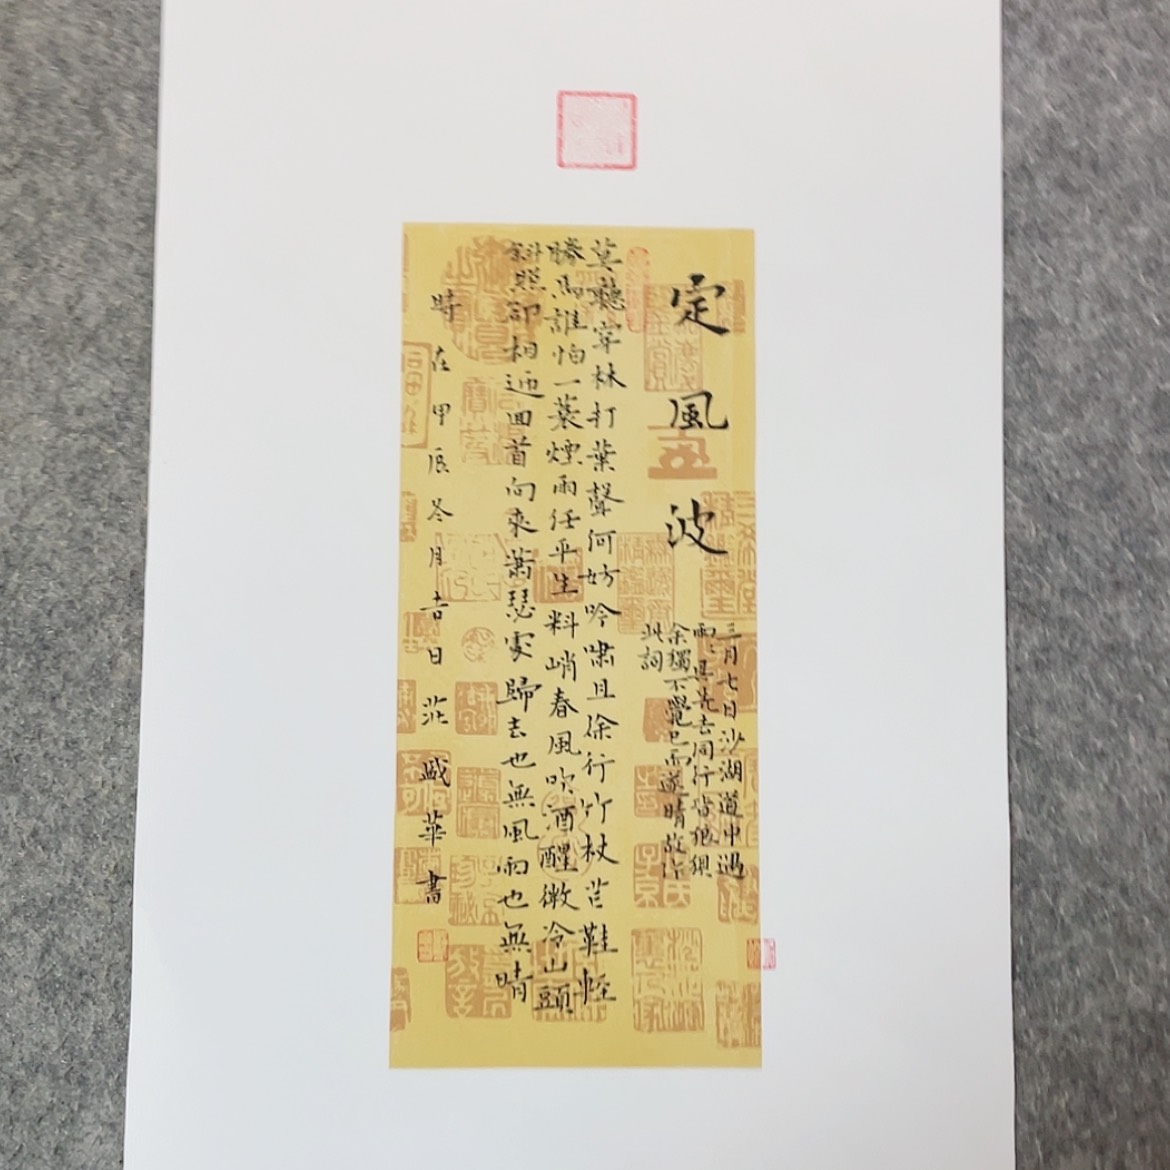 定風波
三月七日沙湖道中遇
雨〻具先去同行皆狼狽
余獨不覺已而遂晴故作
此詞
莫聽穿林打葉聲何妨吟嘯且徐行竹杖芒鞋輕
勝馬誰怕一蓑煙雨任平生料峭春風吹酒醒微冷山頭
斜照卻相迎回首向來蕭瑟處歸去也無風雨也無晴
時在甲辰冬月吉日盛華書